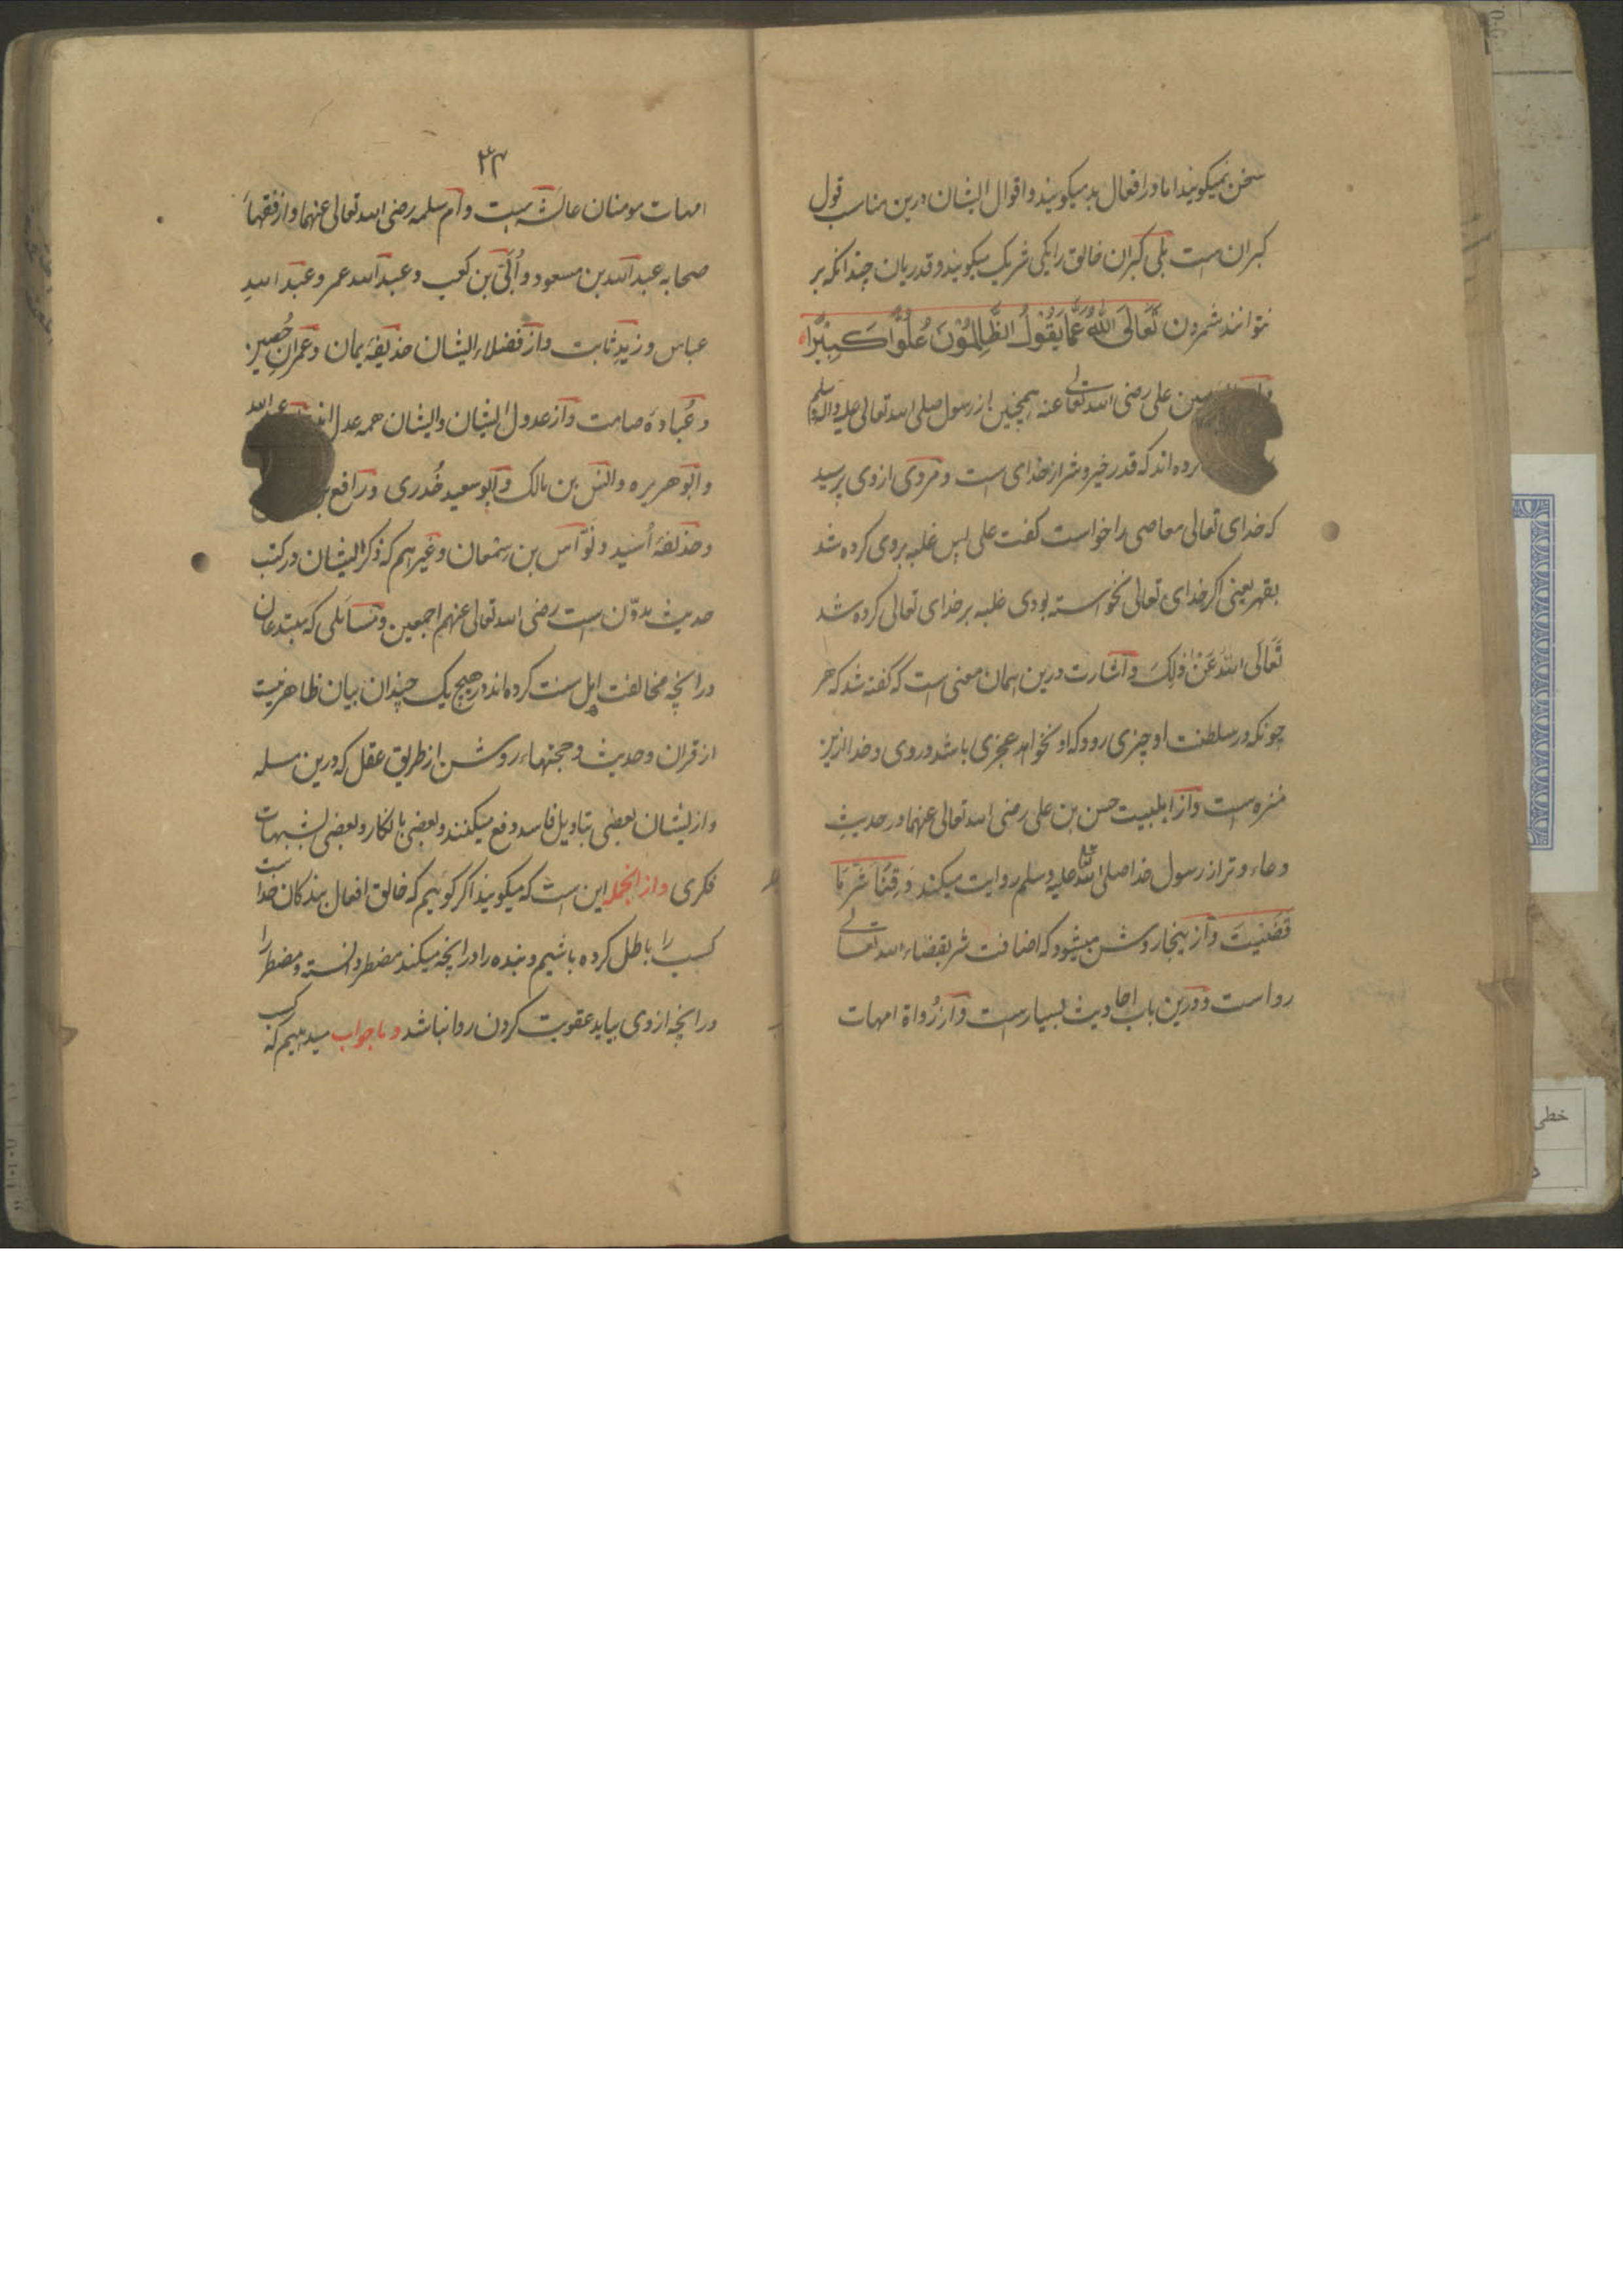 سخن نمیکویند اما در افعال بد میکویند و اقوال ایشان درین مناسب قول
کبران است بلی کبران خالق را یکی شریک میکویند و قدریان چندانکه بر
نتوانند شمردن تَعَالَى اللهُ عَمَّا يَقُوْلُ الظَّالِمُوْنَ عُلُوًّا كَبِيْرًا
علی رضی الله تعالی عنه همچنین از رسول صلی الله تعالی علیه واله وسلم
اند که قدر خیر و شر از خدای است و مروی ازوی پرسید
که خدای تعالی معاصی را خواست کفت علی پس غلبه بروی کرده شد
بقهر یعنی اکر خدای تعالی نخواسته بودی غلبه بر خدای تعالی کرده شد
تَعَالَى اللهُ عَنْ ذٰلِكَ و اشارت درین همان معنی است که کفته شد که هر
چونکه در سلطنت او چیزی رود که او نخواهد عجزی باشد در وی و خدا ازین
منزه است و از اهلبیت حسن بن علی رضی الله تعالی عنهما در حدیث
دعاء وتر از رسول خدا صلی الله علیه وسلم روایت میکند وَ قِنَا شَرَّ مَا
قَضَيْتَ و از ینجا روشن میشود که اضافت شر بقضاء الله تعالی
رواست و درین باب احادیث بسیارست و از رُواة امهات
۳۴
امهات مومنان عائشه است و ام سلمه رضی الله تعالی عنهما و از فقهاَ
صحابه عبد الله بن مسعود و اُبَیّ بن کعب و عبد الله عمر و عبد اللهِ
عباس و زیدِ ثابت و از فضلاء ایشان حذیفهٔ یمان و عمرانِ حُصین
و عُبادهٔ صامت و از عدول ایشان و ایشان همه عدل اند
و ابو هریره و انس بن مالک و ابو سعید خُدری و رافع
و حذیفهٔ اُسَید و نوّاس بن سمعان و غیرهم که ذکر ایشان در کتب
حدیث مدوّن است رضی الله تعالی عنهم اجمعین و مسائلی که مبتدعان
درانچه مخالفت اهل سنت کرده اند در هیچ یک چندان بیان ظاهر نیست
از قران و حدیث و حجتهاء روشن از طریق عقل که درین مسله
و ازیشان بعضی بتاویل فاسد دفع میکنند و بعضی بانکار و بعضی بشبهات
فکری و ازانجمله این است که میکویند اکر کوئیم که خالق افعال بندکان خداست
کسب را باطل کرده باشیم و بنده را درانچه میکند مضطر دانسته و مضطر را
درانچه ازوی بیاید عقوبت کردن روا نباشد و ما جواب میدهیم که کسب
خطی